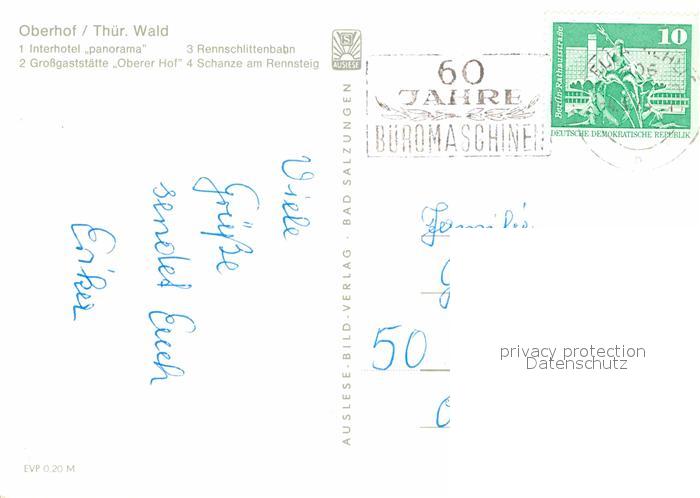 Oberhof / Thür. Wald
1 Interhotel „panorama"
2 Großgaststätte „Oberer Hof"
3 Rennschlittenbahn
4 Schanze am Rennsteig
AUSLESE
AUSLESE-BILD-VERLAG · BAD SALZUNGEN
60
JAHRE
BÜROMASCHINEN
10
Berlin-Rathausstraße
DEUTSCHE DEMOKRATISCHE REPUBLIK
Viele
Grüße
sendet Euch
50
privacy protection
Datenschutz
EVP 0,20 M